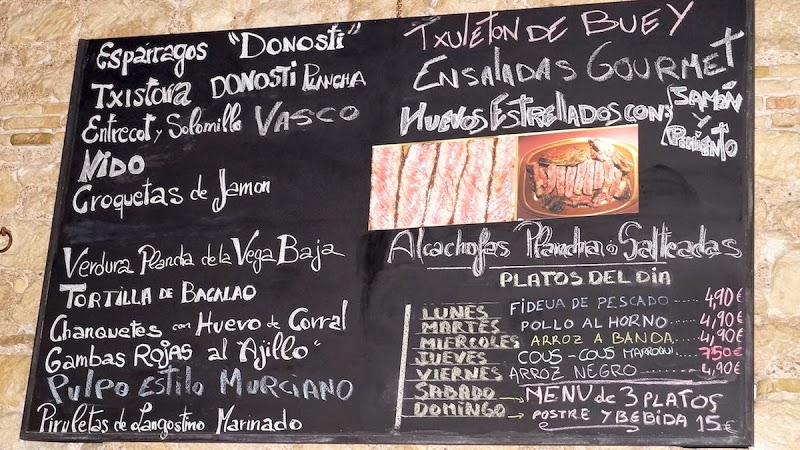 Espárragos "DONOSTI"
TXISTORRA DONOSTI PLANCHA
Entrecot y Solomillo VASCO
NIDO
Croquetas de Jamon
Verdura Plancha de la Vega Baja
TORTILLA DE BACALAO
Chanquetes con Huevo de Corral
Gambas ROJAS al "Ajillo"
PULPO ESTILO MURCIANO
Piruletas de Langostino Marinado
TXULETON DE BUEY
ENSALADAS GOURMET
HUEVOS ESTRELLADOS CON: JAMÓN Y Pimiento
Alcachofas Plancha ó Salteadas
PLATOS DEL DIA
LUNES FIDEUA DE PESCADO ..... 4,90€
MARTES POLLO AL HORNO ..... 4,90€
MIERCOLES ARROZ A BANDA ..... 4,90€
JUEVES COUS-COUS MARROQUI ... 7,50€
VIERNES ARROZ NEGRO ..... 4,90€
SABADO → MENU de 3 PLATOS
DOMINGO → POSTRE Y BEBIDA 15€